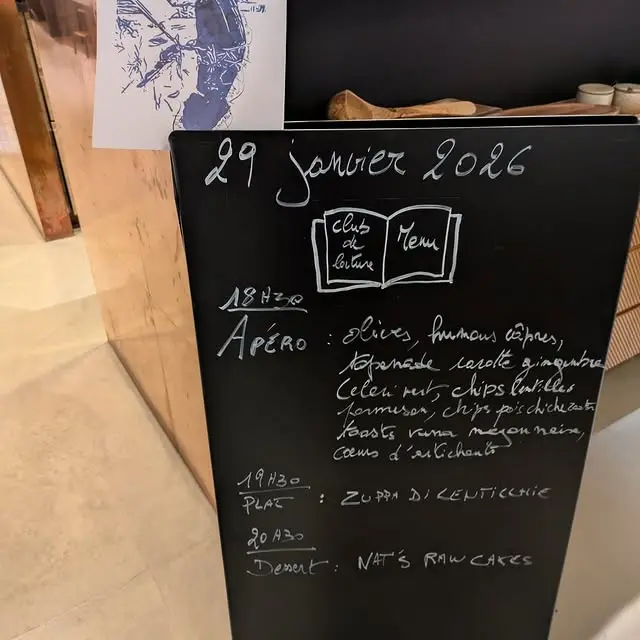 29 janvier 2026
club de lecture
Menu
18H30
APÉRO : olives, humous câpres,
tapenade carotte gingembre
Celeri vert, chips lentilles
parmesan, chips pois chiche
toasts mayonnaise,
cœurs d'artichauts
19H30
PLAT : ZUPPA DI LENTICCHIE
20H30
Dessert : NAT'S RAW CAKES